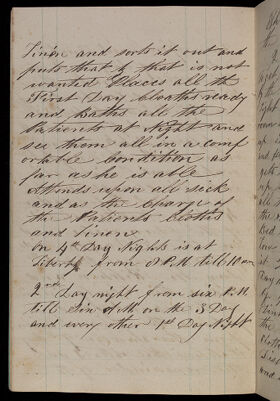 Linen and sorts it out and
puts that of that is not
wanted Places all the
First Day Cloaths ready
and Baths all the
Patients at Night and
see them all in a comf
ortable Condition as
far as he is able
Attends upon all sick
and as the Charge of
the Patients Cloths
and Linen
On 4th Day Night is at
Liberty from 8 P.M. till 10
2nd Day night from six P.M.
till six on the 3 Day
and every other 1st Day Night